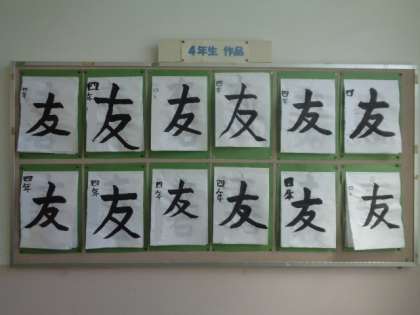 4年生 作品
友
四年
友
友
友
友
友
四年
友
四年
友
四年
友
四年
友
四年
友
友